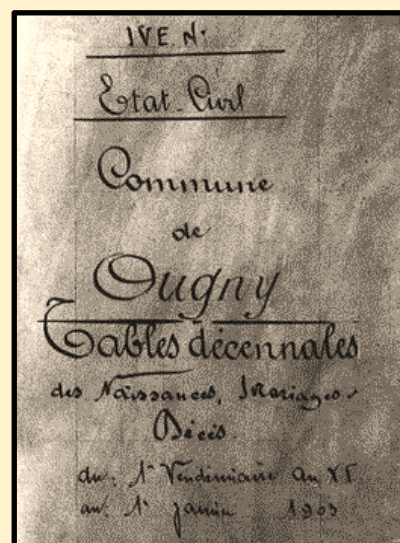 IVE N.
Etat-Civil
Commune
de
Ougny
Tables décennales
des Naissances, Mariages
Décès
du: 1er Vendémiaire an XI
au: 1er janvier 1903